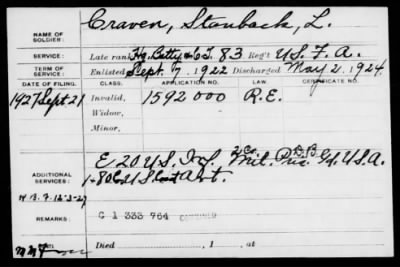 NAME OF SOLDIER: Craven, Stanback, L.
SERVICE: Late rank Hq. Batty & C.T. 83 Reg't U.S.F.A.
TERM OF SERVICE: Enlisted Sept. 7, 1922 Discharged May 21, 1924
DATE OF FILING. CLASS. APPLICATION NO. LAW. CERTIFICATE NO.
1927 Sept 21 Invalid, 1592000 R.E.
Widow,
Minor,
ADDITIONAL SERVICES: E 20 U.S. Inf. 2 Co. Mil. Pris. Gd. U.S.A.
U.S. Art.
REMARKS: C 1 333 764
Died , 1 , at